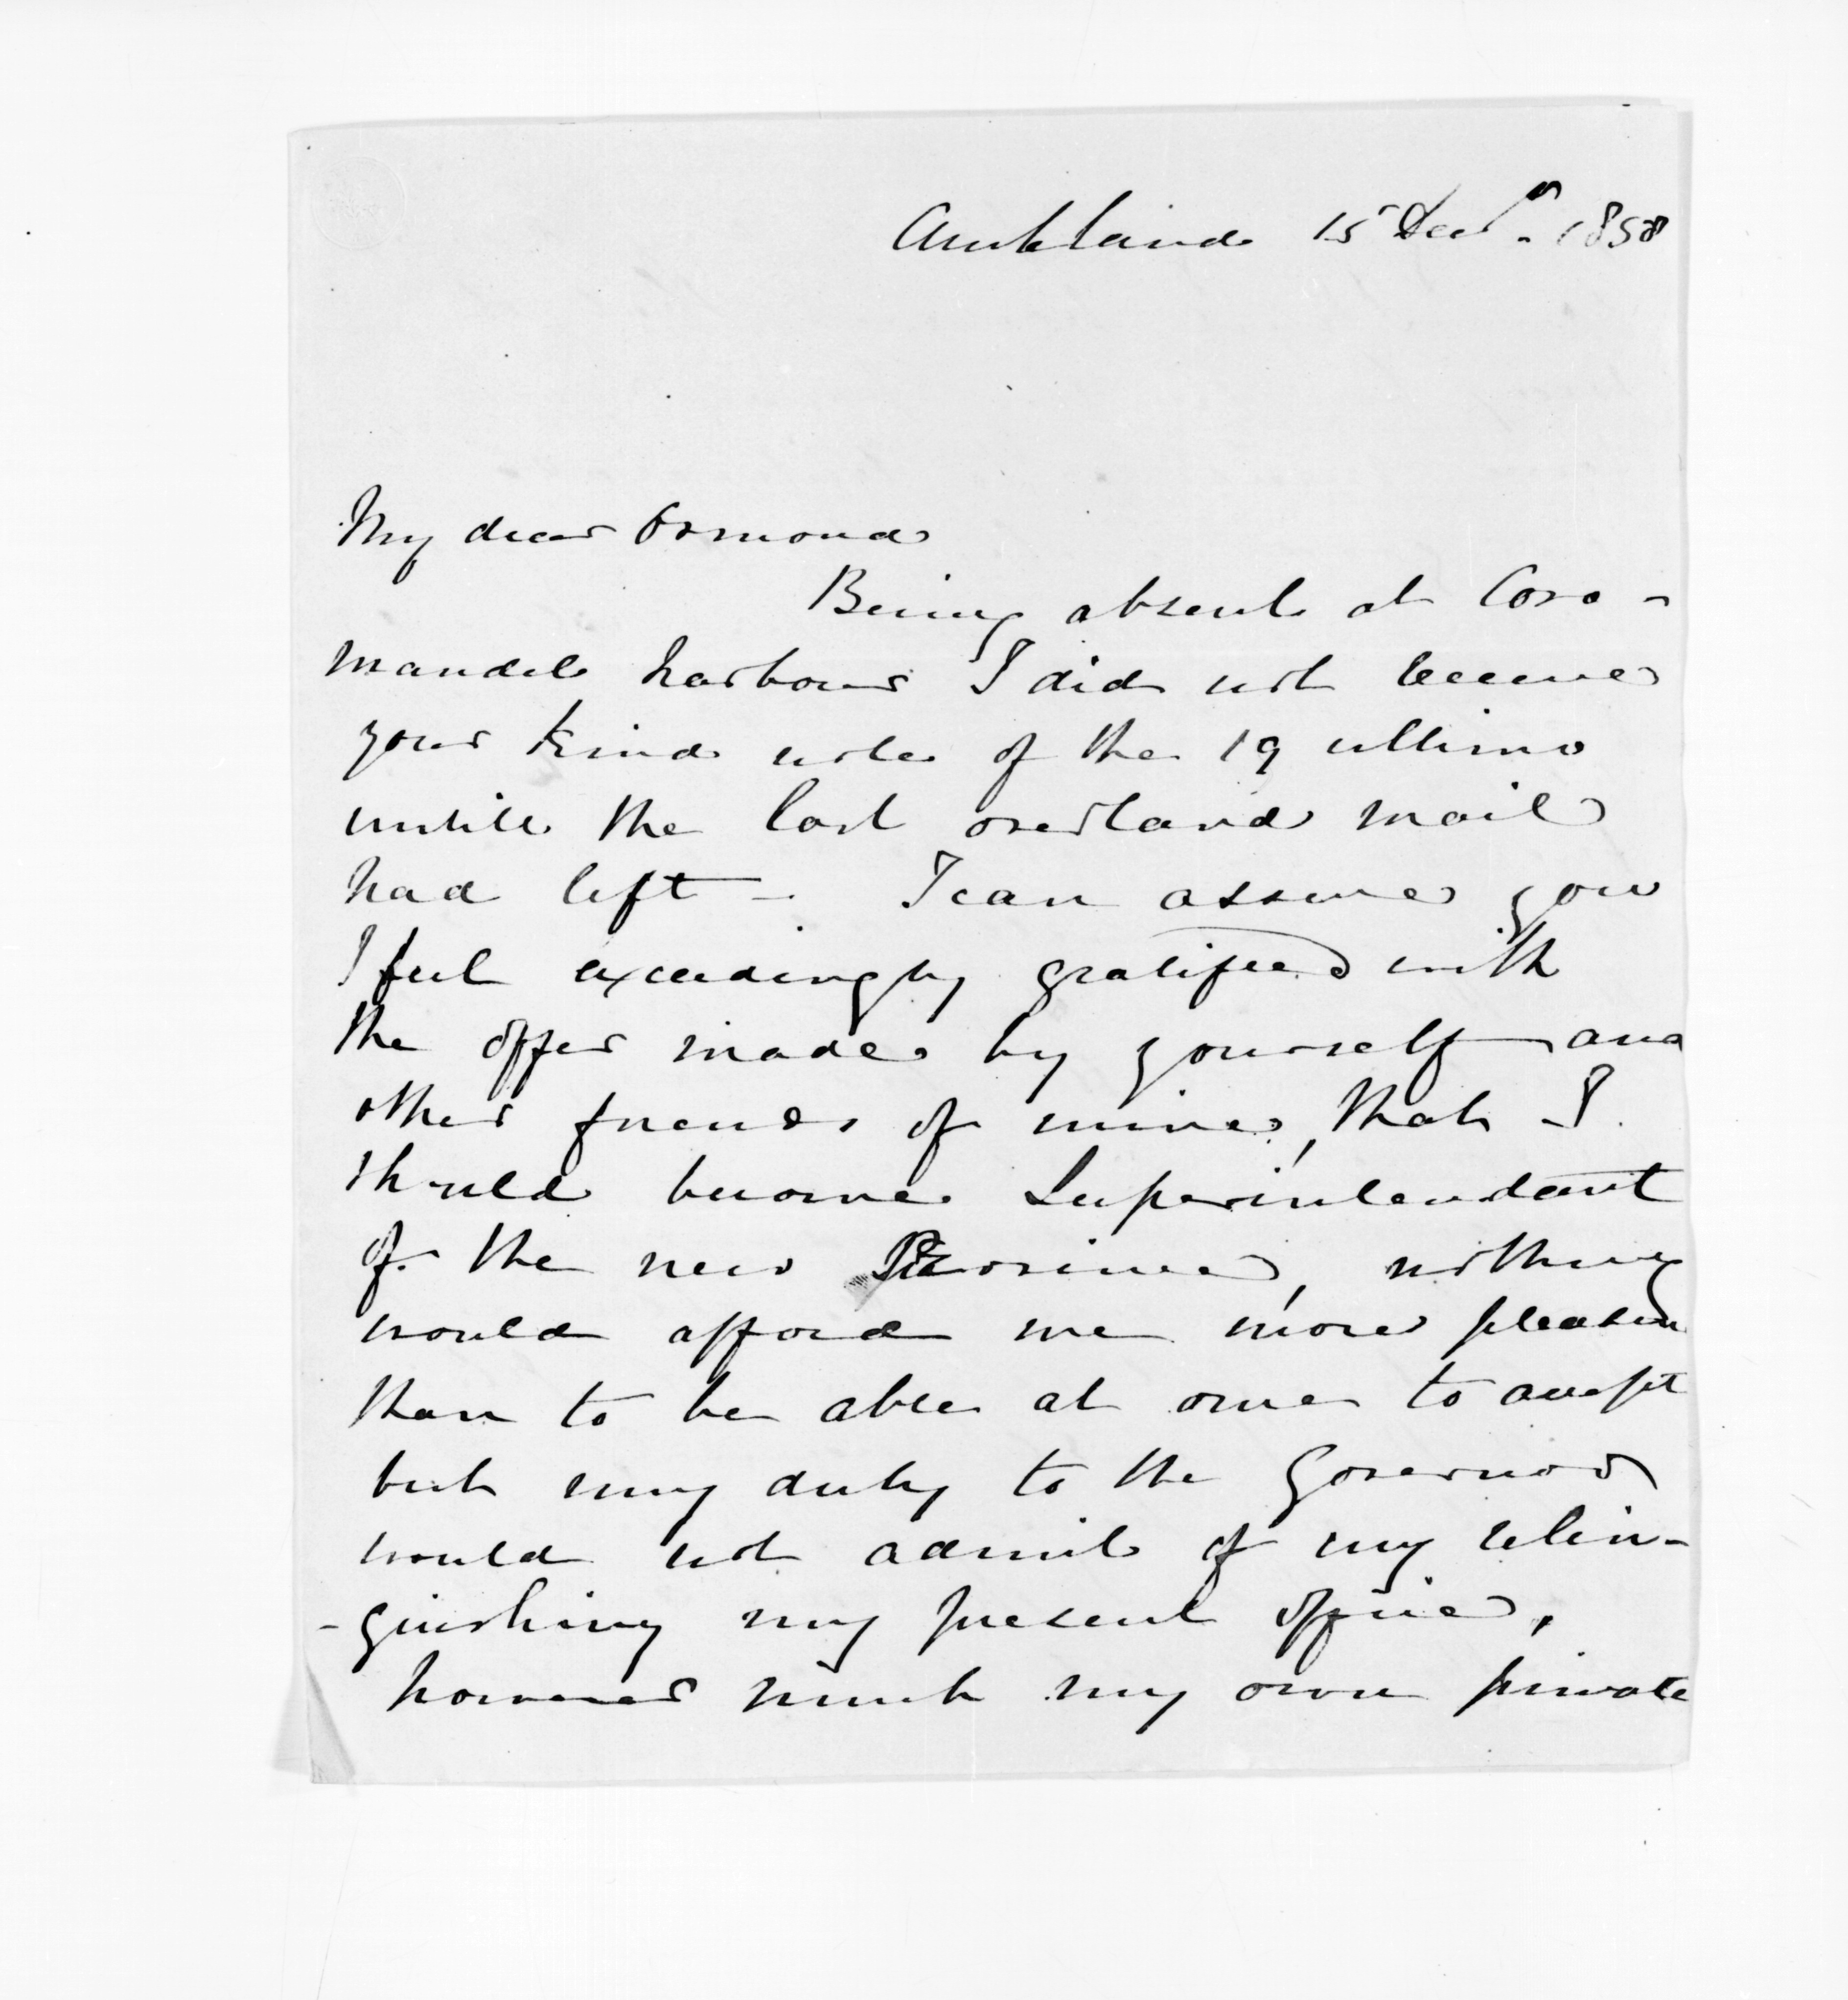 Auckland 15 Decr. 1858
My dear Ormond
Being absent at Coro-
mandel harbour I did not receive
your kind note of the 19 ultimo
untill the last overland mail
had left -. I can assure you
I feel exceedingly gratified with
the offer made by yourself and
other friends of mine, that I
should become Superintendant
of the new Province, nothing
would afford me more pleasure
than to be able at once to accept
but my duty to the Governor
would not admit of my relin-
-quishing my present office,
however much my own private